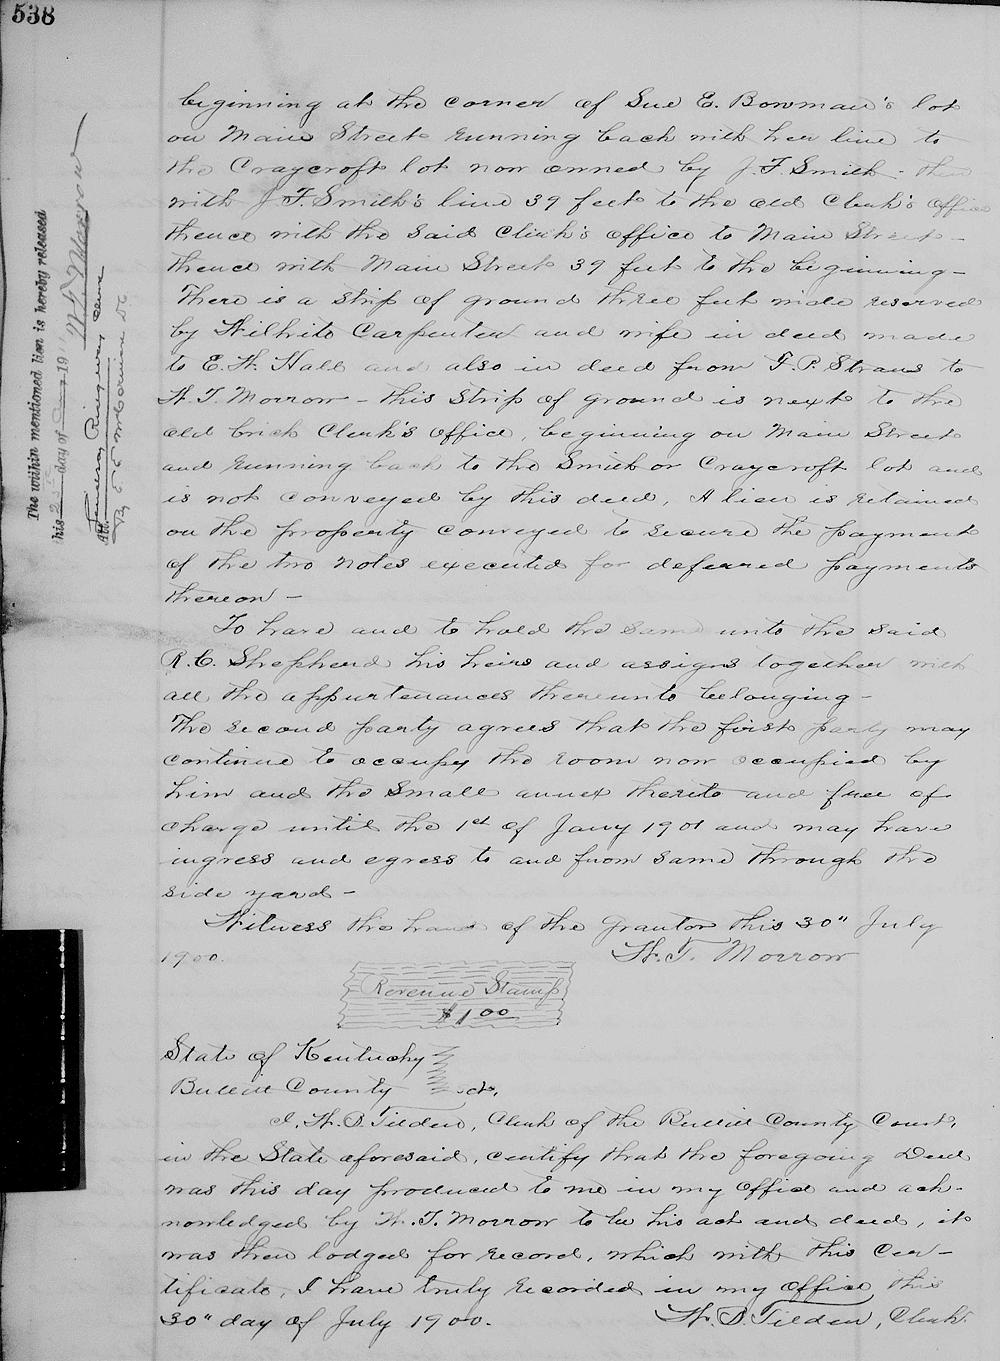 538
beginning at the corner of Sue E. Bowman's lot
on Main Street running back with her line to
the Craycroft lot now owned by J. F. Smith - then
with J. F. Smith's line 39 feet to the old Clerk's office
thence with the said Clerk's office to Main Street -
thence with Main Street 39 feet to the beginning -
There is a strip of ground three feet wide reserved
by Wilhite Carpenter and wife in deed made
to E. W. Hall and also in deed from F. P. Straus to
W. T. Morrow - this strip of ground is next to the
old brick Clerk's office, beginning on Main Street
and running back to the Smith or Craycroft lot and
is not conveyed by this deed, A lien is retained
on the property conveyed to secure the payment
of the two notes executed for deferred payments
thereon -
To have and to hold the same unto the said
R. C. Shepherd his heirs and assigns together with
all the appurtenances thereunto belonging -
The second party agrees that the first party may
continue to occupy the room now occupied by
him and the small annex thereto and free of
charge until the 1st of Jany 1901 and may have
ingress and egress to and from same through the
side yard -
Witness the hand of the Grantor this 30" July
1900. W. T. Morrow
Revenue Stamp
$1.00
State of Kentucky
Bullitt County sct,
I, W. D. Tilden, Clerk of the Bullitt County Court,
in the State aforesaid, certify that the foregoing Deed
was this day produced to me in my office and ack-
nowledged by W. T. Morrow to be his act and deed, it
was then lodged for record, which with this Cer-
tificate, I have truly recorded in my office this
30" day of July 1900. W. D. Tilden, Clerk.
The within mentioned lien is hereby released
this day of 19
W. T. Morrow
Att.
By